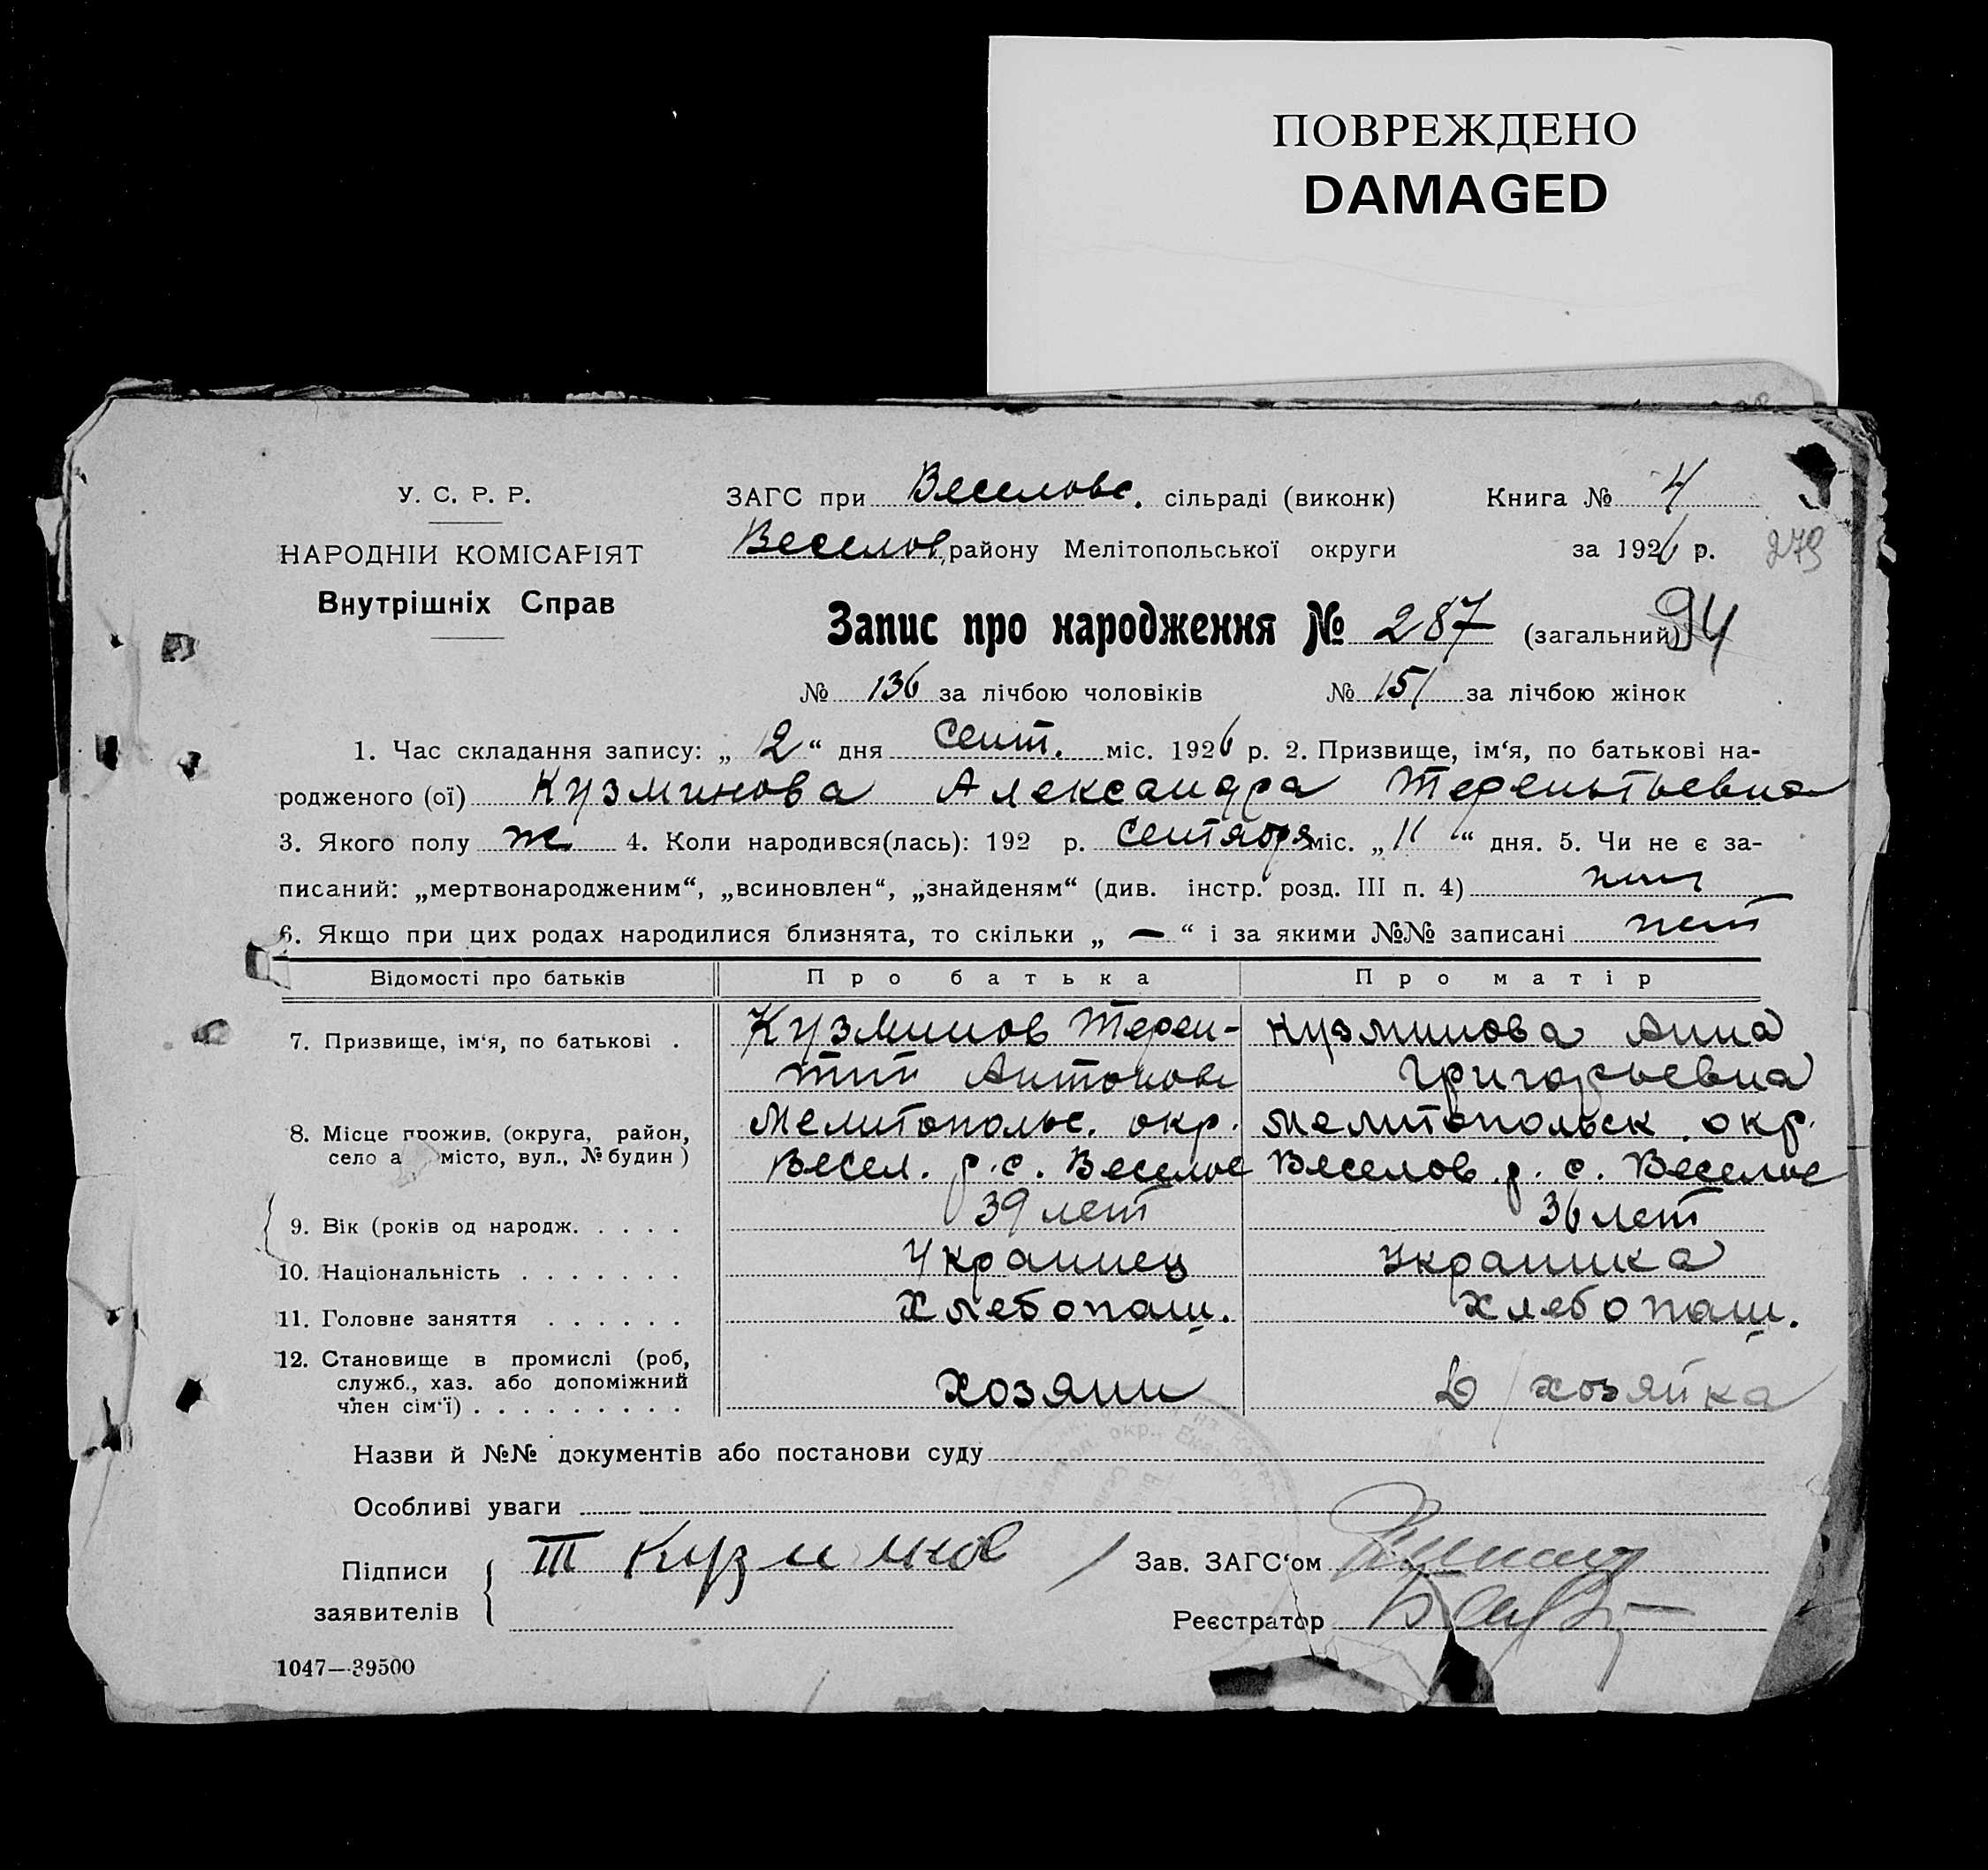 ПОВРЕЖДЕНО
DAMAGED
У. С. Р. Р.
НАРОДНІЙ КОМІСАРІЯТ
Внутрішніх Справ
ЗАГС при Веселовс. сільраді (виконк) Книга № 4
Веселов. району Мелітопольської округи за 1926 р. 279
Запис про народження № 287 (загальний) 94
№ 136 за лічбою чоловіків № 151 за лічбою жінок
1. Час складання запису: „ 12 “ дня сент. міс. 1926 р. 2. Призвище, ім‘я, по батькові на-
родженого (ої) Кузминова Александра Терентьевна
3. Якого полу ж 4. Коли народився(лась): 192 р. сентября міс. „ 11 “ дня. 5. Чи не є за-
писаний: „мертвонародженим“, „всиновлен“, „знайденям“ (див. інстр. розд. III п. 4)
6. Якщо при цих родах народилися близнята, то скільки „ — “ і за якими №№ записані нет
Відомості про батьків Про батька Про матір
7. Призвище, ім‘я, по батькові . Кузминов Терен- Кузминова Анна
тий Антонов Григорьевна
8. Місце прожив. (округа, район, Мелитопольс. окр. Мелитопольск. окр.
село а місто, вул., № будин ) Весел. р. с. Веселое Веселов. р. с. Веселое
9. Вік (років од народж. . . . . 39 лет 36 лет
10. Національність . . . . . . . Украинец Украинка
11. Головне заняття . . . . . . Хлебопаш. Хлебопаш.
12. Становище в промислі (роб,
служб., хаз. або допоміжний хозяин Д/хозяйка
член сім‘ї) . . . . . . . . .
Назви й №№ документів або постанови суду
Особливі уваги
Підписи Т Кузминов Зав. ЗАГС‘ом
заявителів Реєстратор
1047—39500